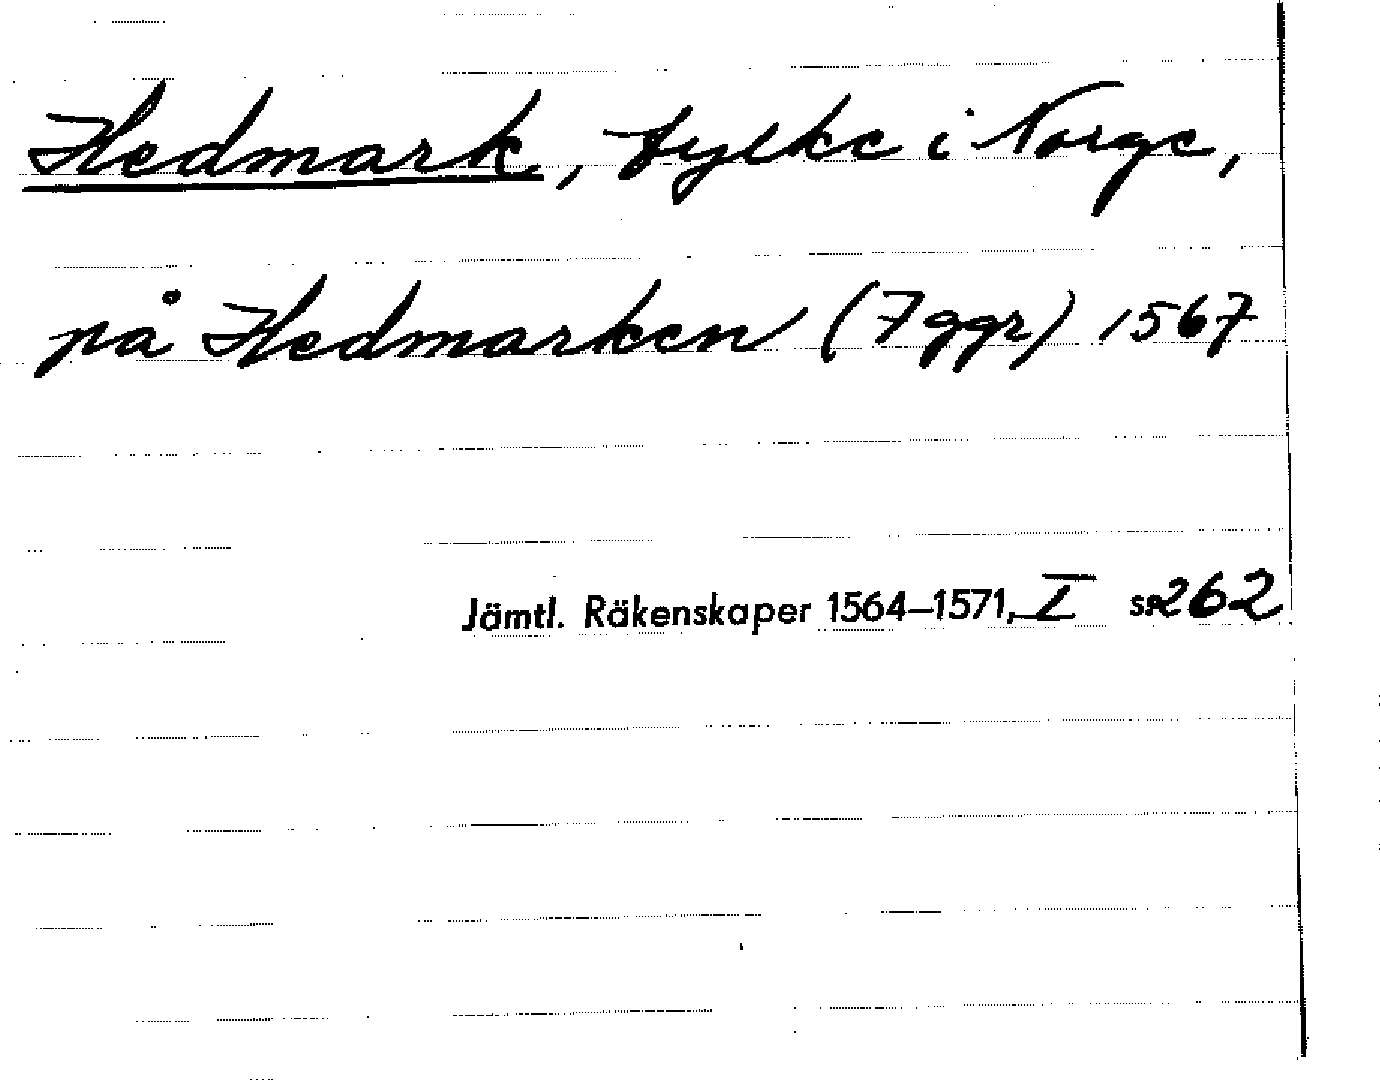 Hedmark, fylke i Norge,
på Hedmarken (7 ggr) 1567
Jämtl. Räkenskaper 1564–1571, I s. 262